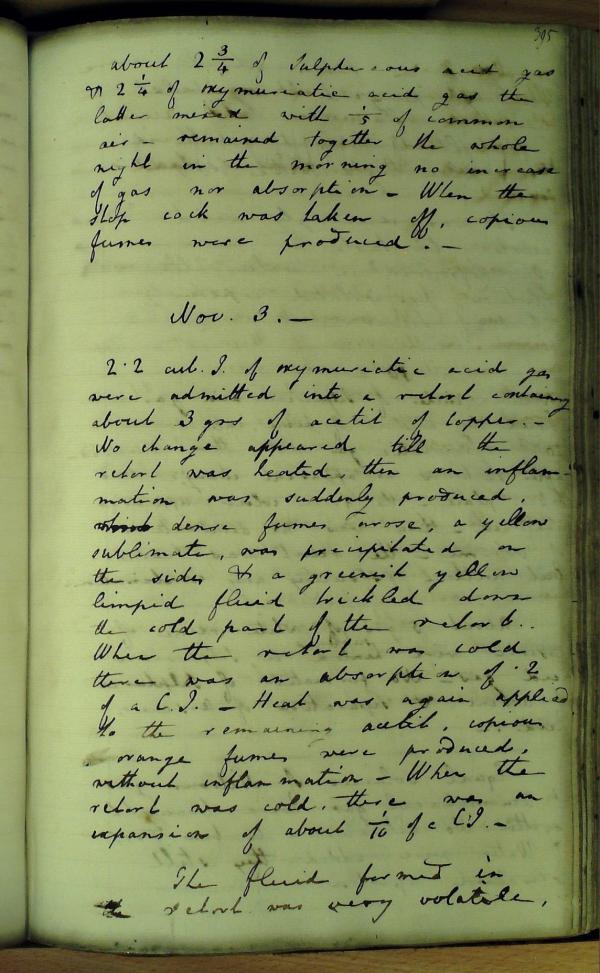 305
about 2 3/4 of Sulphureous acid gas
& 2 1/4 of oxymuriatic acid gas the
latter mixed with 1/5 of common
air – remained together the whole
night in the morning no increase
of gas nor absorption – When the
stop cock was taken off, copious
fumes were produced. –
Nov. 3. –
2.2 cub. I. of oxymuriatic acid gas
were admitted into a retort containing
about 3 grs of acetit of Copper. –
No change appeared till the
retort was heated, then an inflam-
mation was suddenly produced,
dense fumes arose, a yellow
sublimate, was precipitated on
the sides & a greenish yellow
limpid fluid trickled down
the cold part of the retort..
When the retort was cold
there was an absorption of .2
of a C.I. – Heat was again applied
to the remaining acetit, copious
orange fumes were produced,
without inflammation – When the
retort was cold, there was an
expansion of about 1/10 of a C.I. –
The fluid formed in
the retort was very volatile,